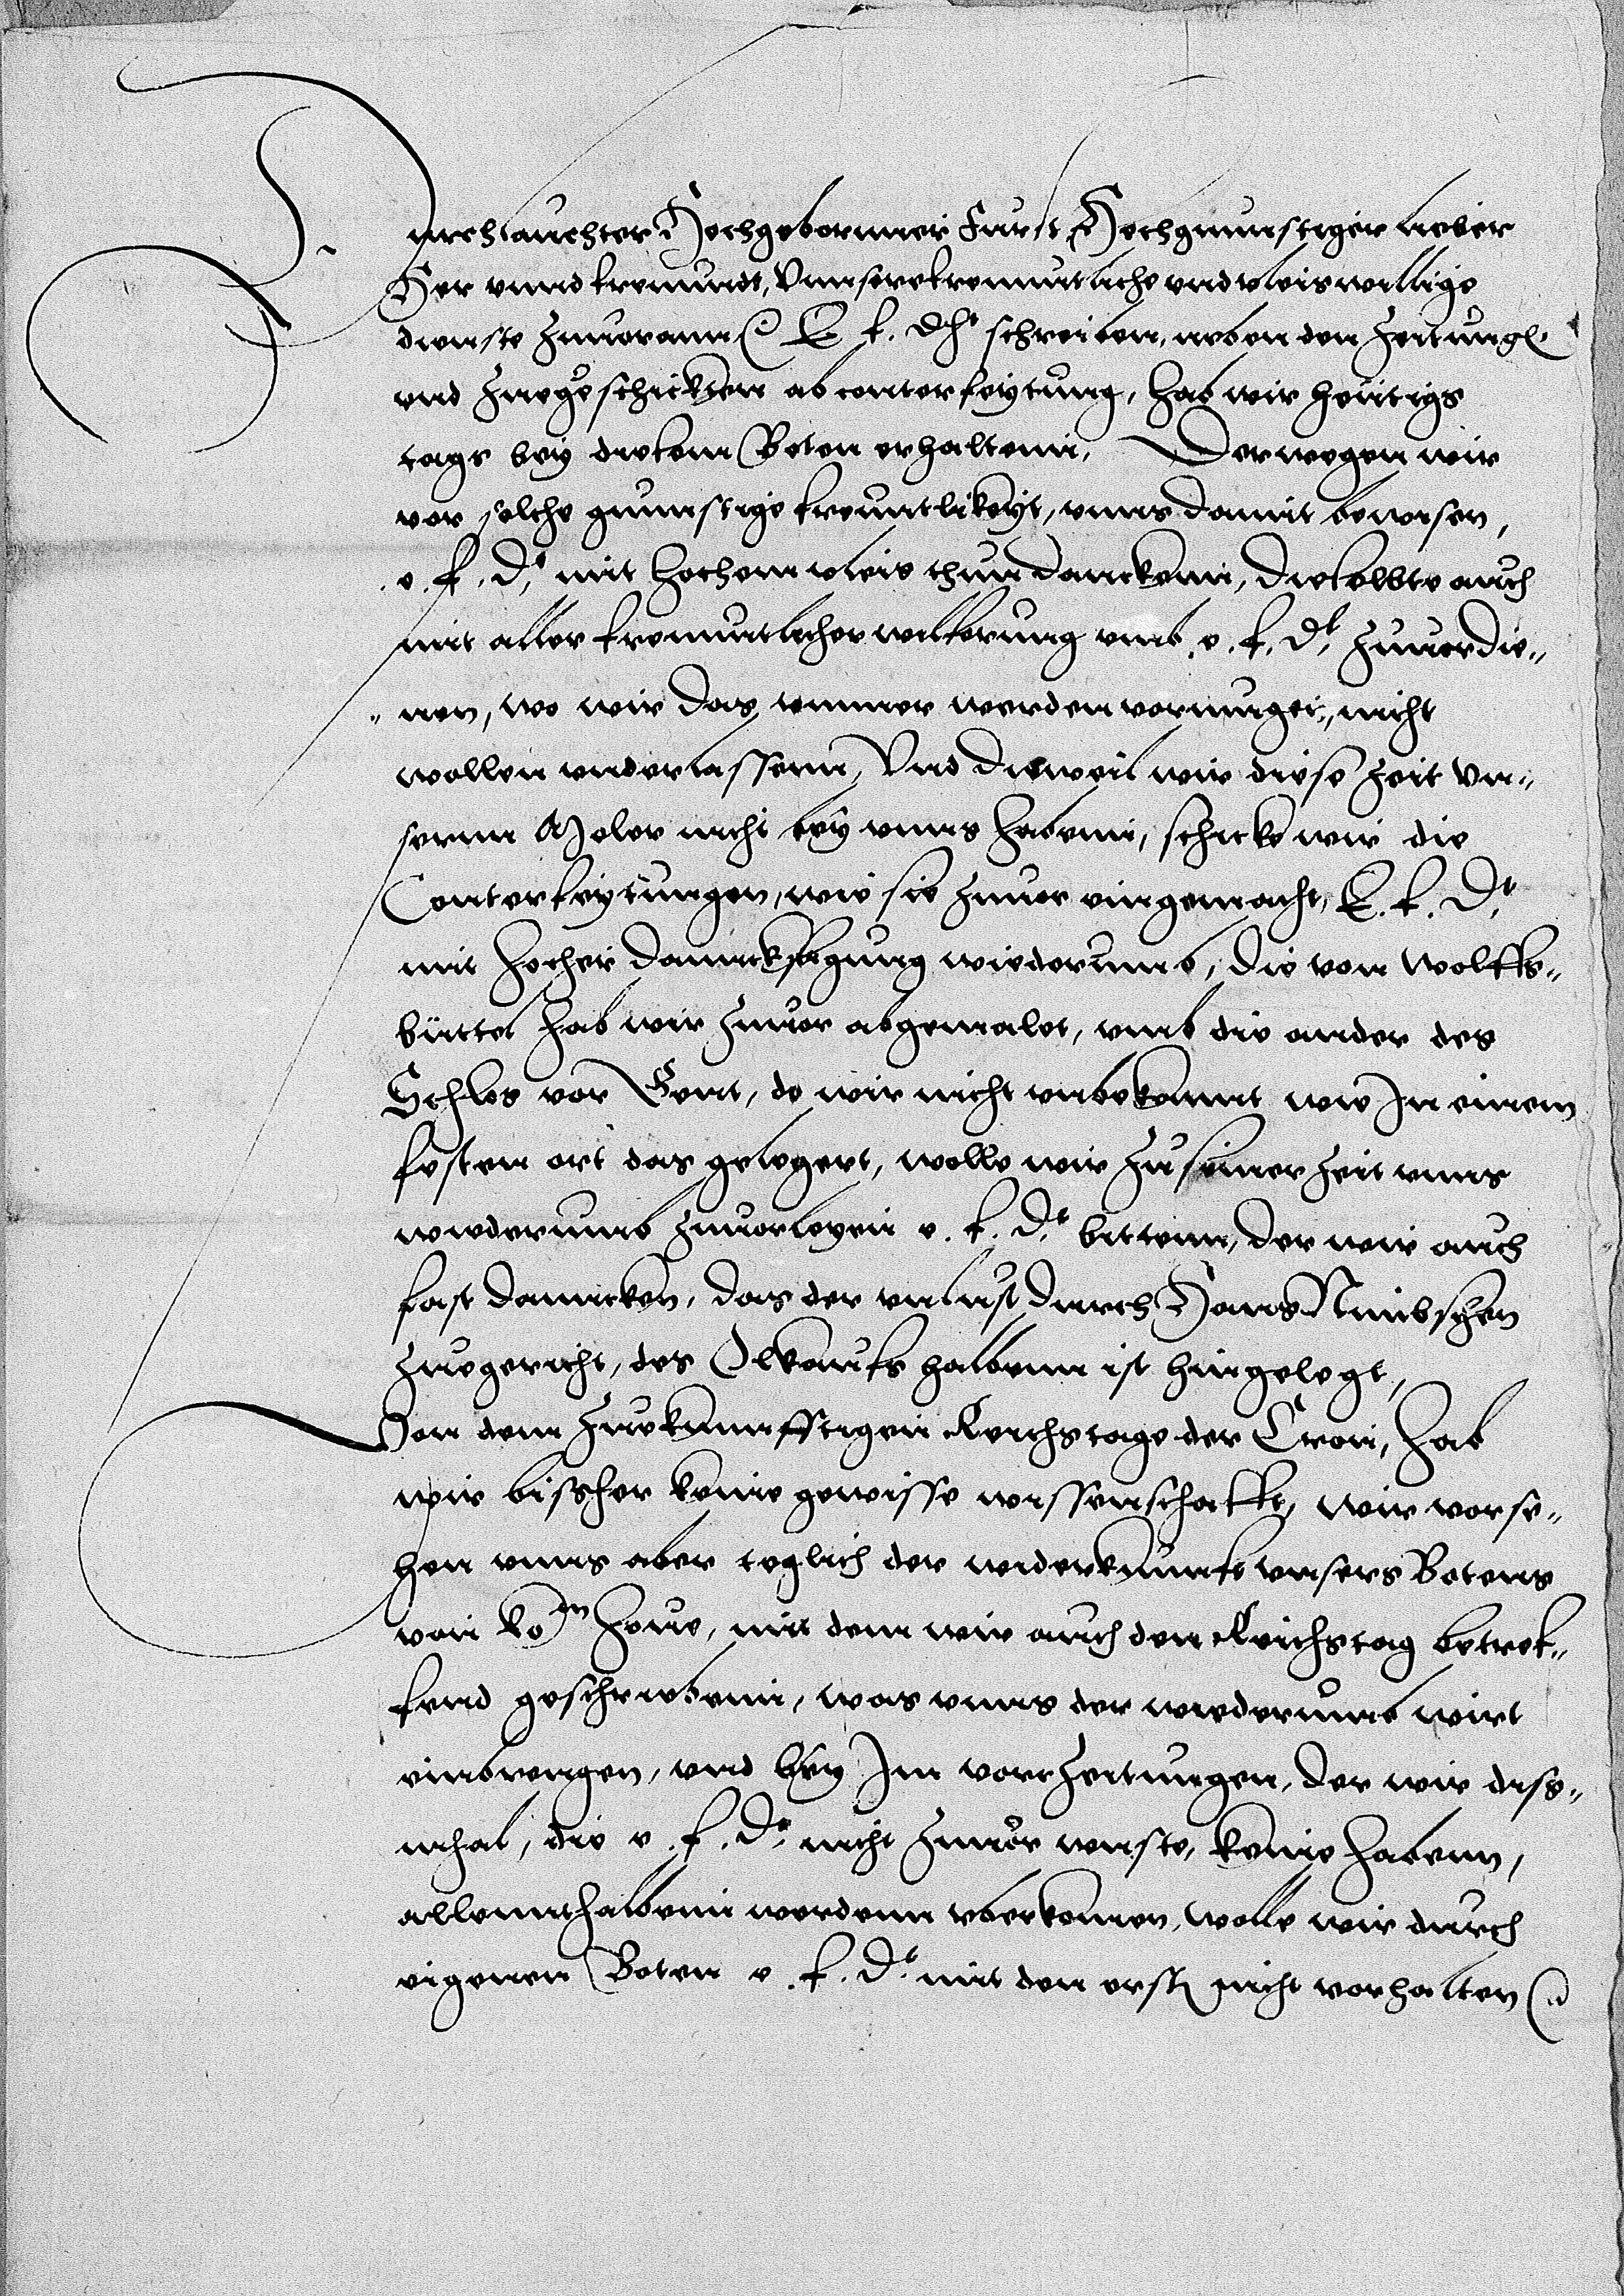 Durchlauchter Hochgebornner Furst, Hochgunnstiger lieber
Her vnnd freunndt, Vnnsere freunntliche vnd vleiswillige
dienste Zuuorann E f. Dht schreiben, neben den Zeitung
vnd Zuegeschickten abconterfeytung, hab wir heutigs
tags bey diesem Boten erhaltenn, Derwegen wir
vor solche gunnstige freuntlikeyt, vnns damit bewesen,
e. f. Dt, mit hochem vleis thun danckenn, dieselbte auch
mit aller freunntlicher wilferung vmb e. f. Dt. Zuuordie„
„nen, wo wir das ymmer werden vormugen, nicht
wollen vnderlassenn, Vnd dieweil wir diese Zeit vn„
sernn Moler nicht bey vnns habenn, schicke wir die
Conterfeytungen, wie sie Zuuor eingemacht, E. f. Dt,
mit hocher dannckssagung wiederumb, die von Wolffs„
büttel hab wir Zuuor abgemalet, vmb die ander des
Schlos vor Gent, do wir nicht vnbekannt wie In einem
festen ort das gelegert, wolle wir Zu seiner Zeit vnns
wiederumb Zuuorleyen e. f. Dt. bittenn, der wir auch
fast danncken, das der vnlust durch Hans Nimbschen
Zuegericht, des Olkaufs halbenn ist hingelegt,
Von dem Zuekunnfftigen Reichstage der Cron, hab
wir bissher keine gewisse wissenschafft, wir vorse„
hen vnns aber teglich der widerkunnft vnsers Botens
von kon houe, mit dem wir auch den Reichstag betref„
fend geschriebenn, was vnns der wiederumb wirt
einbrengen, vnd bey Im vor Zeitungen, der wir diss„
mhal, die e. f. Dt. nicht Zuuor wuste, keine habenn,
allennthalbenn werdenn vberkomen, wolle wir durch
eigenen Boten e. f. Dt. mit den ersten nicht vorhalten